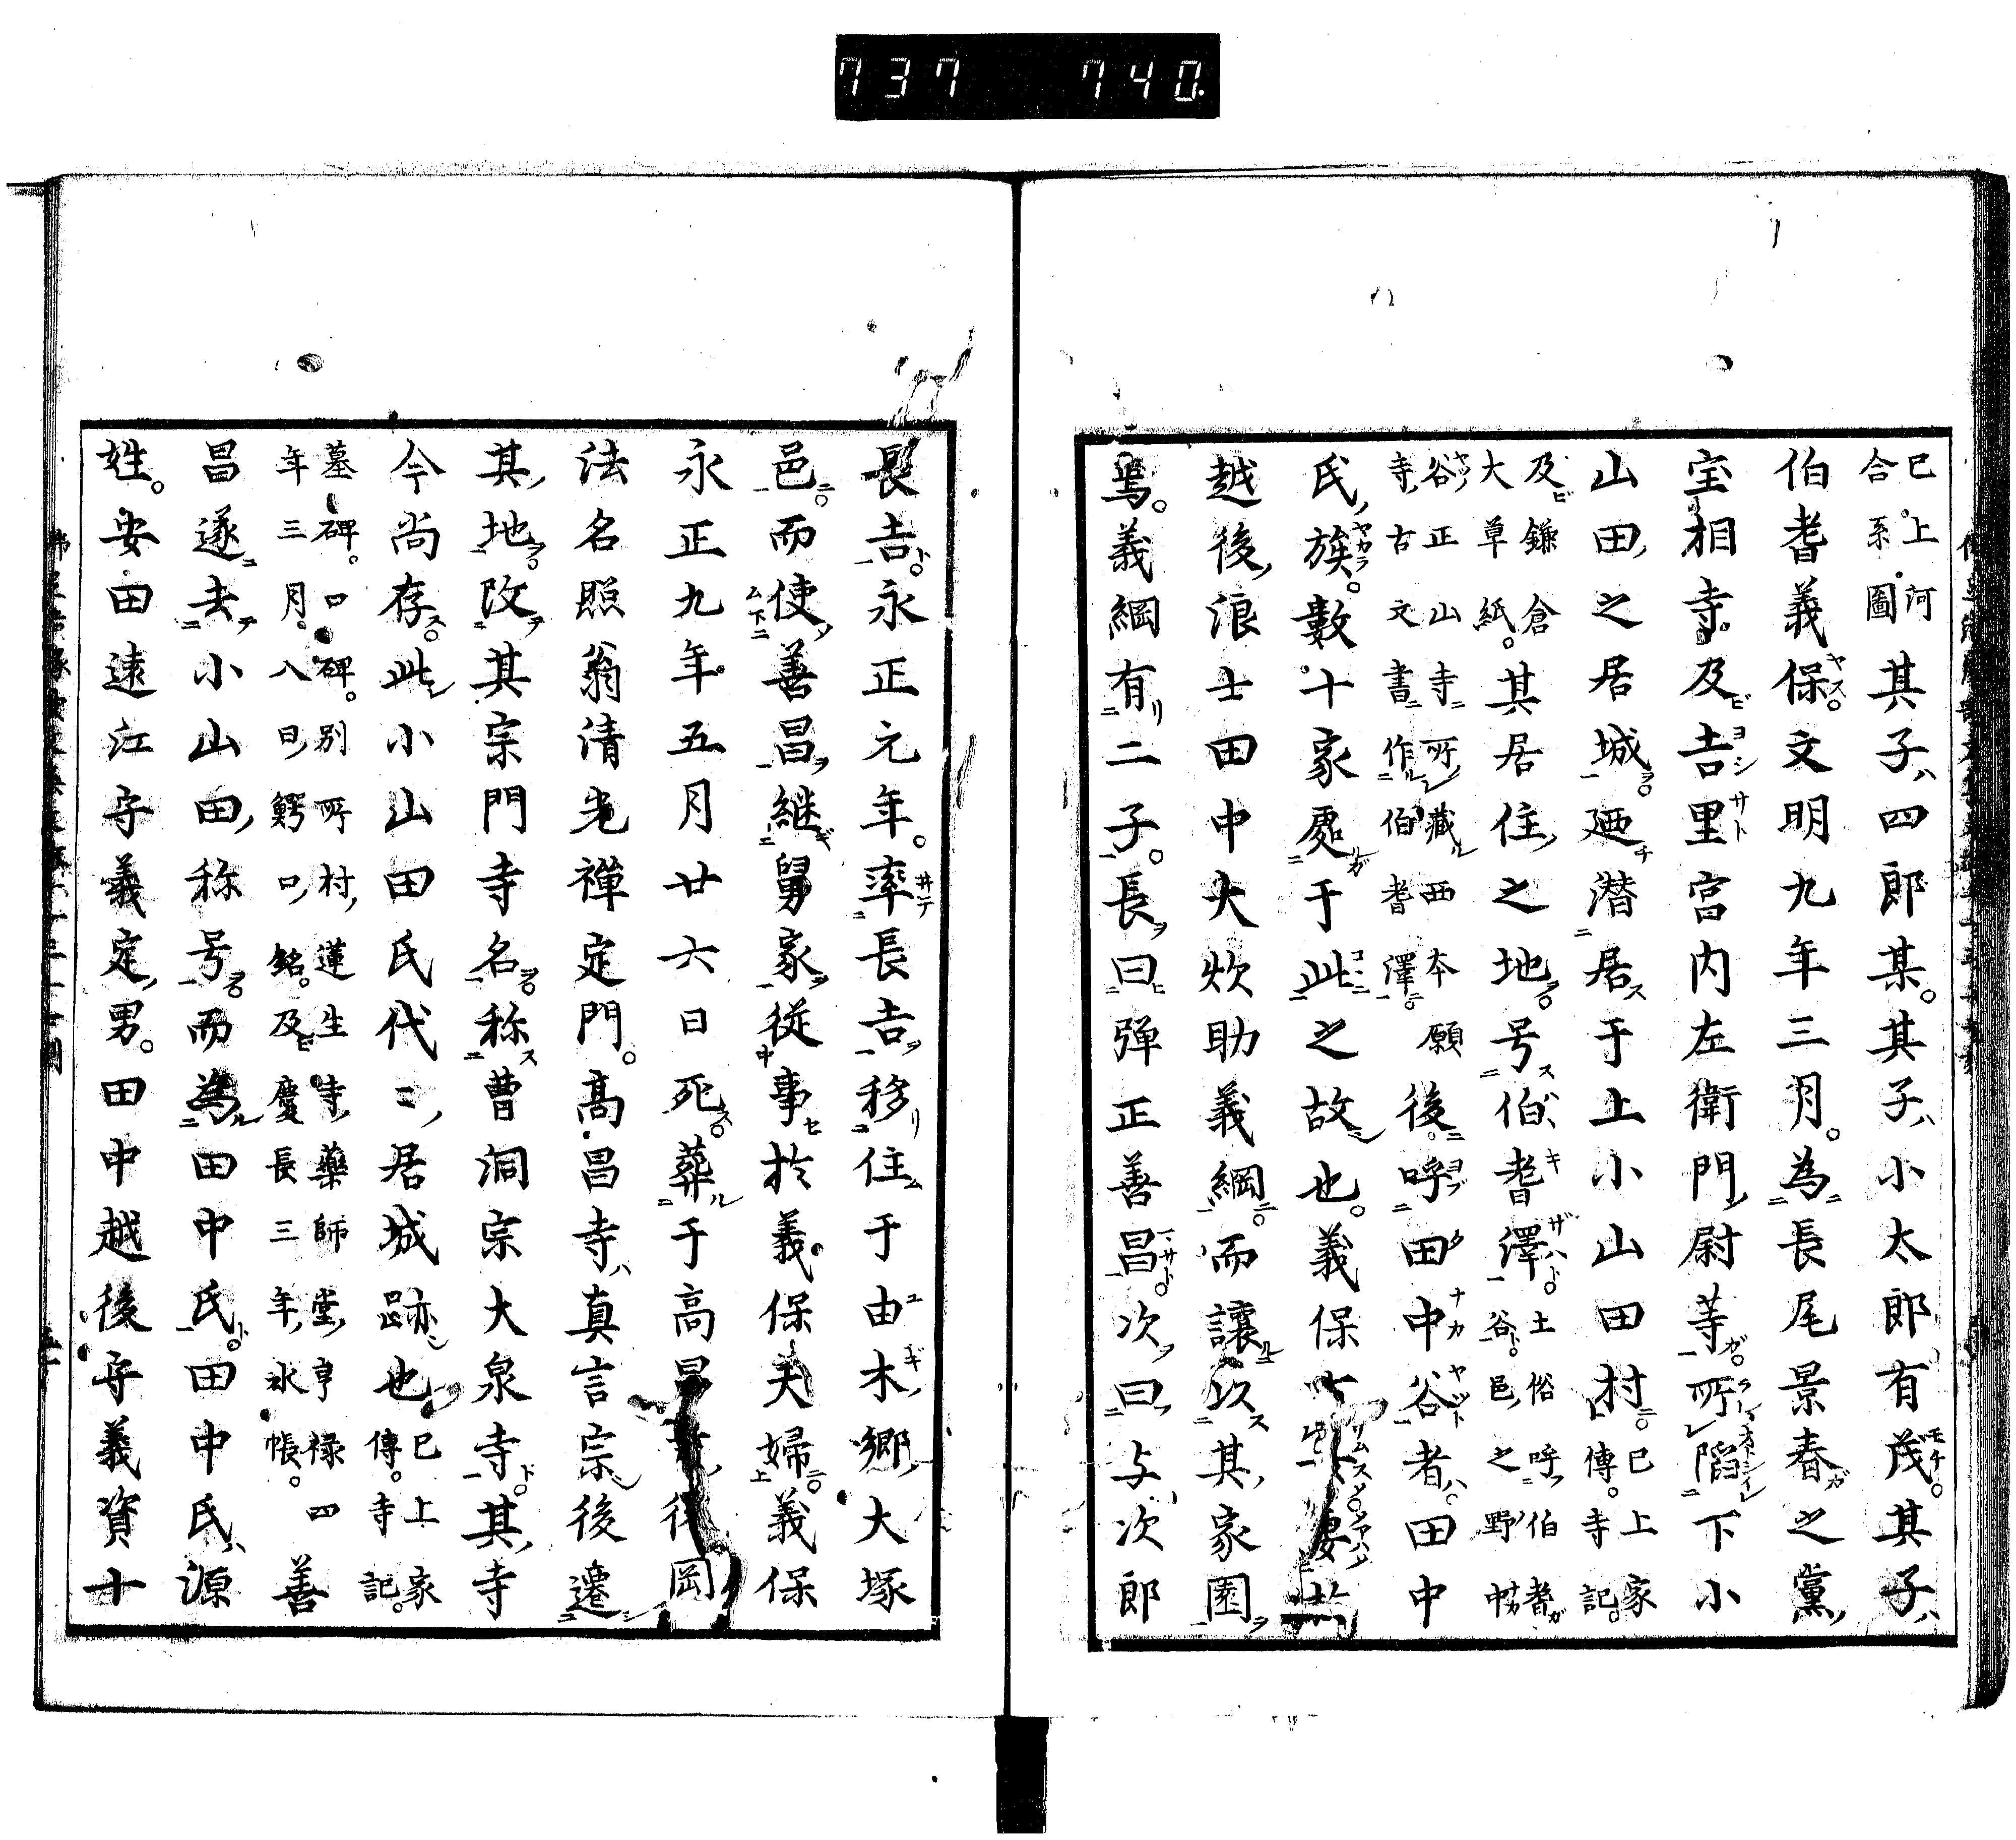 737 740.
巳上河合系圖其子四郎某其子小太郎有茂其子
伯耆義保文明九年三月為長尾景春之黨
宝相寺及吉里宮内左衛門尉等所䧟下小
山田之居城廼潜居于上小山田村巳上家傳寺記
及鎌倉大草紙其居住之地号伯耆澤土俗呼伯耆谷邑之野中
谷正山寺所藏西本願寺古文書作伯耆澤後呼田中谷者田中
氏族數十家處于此之故也義保
越後浪士田中大炊助義綱而讓以其家園
焉義綱有二子長曰彈正善昌次曰与次郎
長吉永正元年率長吉移住于由木郷大塚
邑而使善昌継舅家從事於義保夫婦義保
永正九年五月廿六日死葬于高昌寺後岡
法名照翁清光禪定門高昌寺真言宗後遷
其地改其宗門寺名称曹洞宗大泉寺其寺
今尚存此小山田氏代〻居城跡也巳上家傳寺記
墓碑口碑別所村蓮生寺藥師堂享禄四年三月八日鰐口銘及慶長三年水帳善
昌遂去小山田称号而為田中氏田中氏源
姓安田遠江守義定男田中越後守義資十